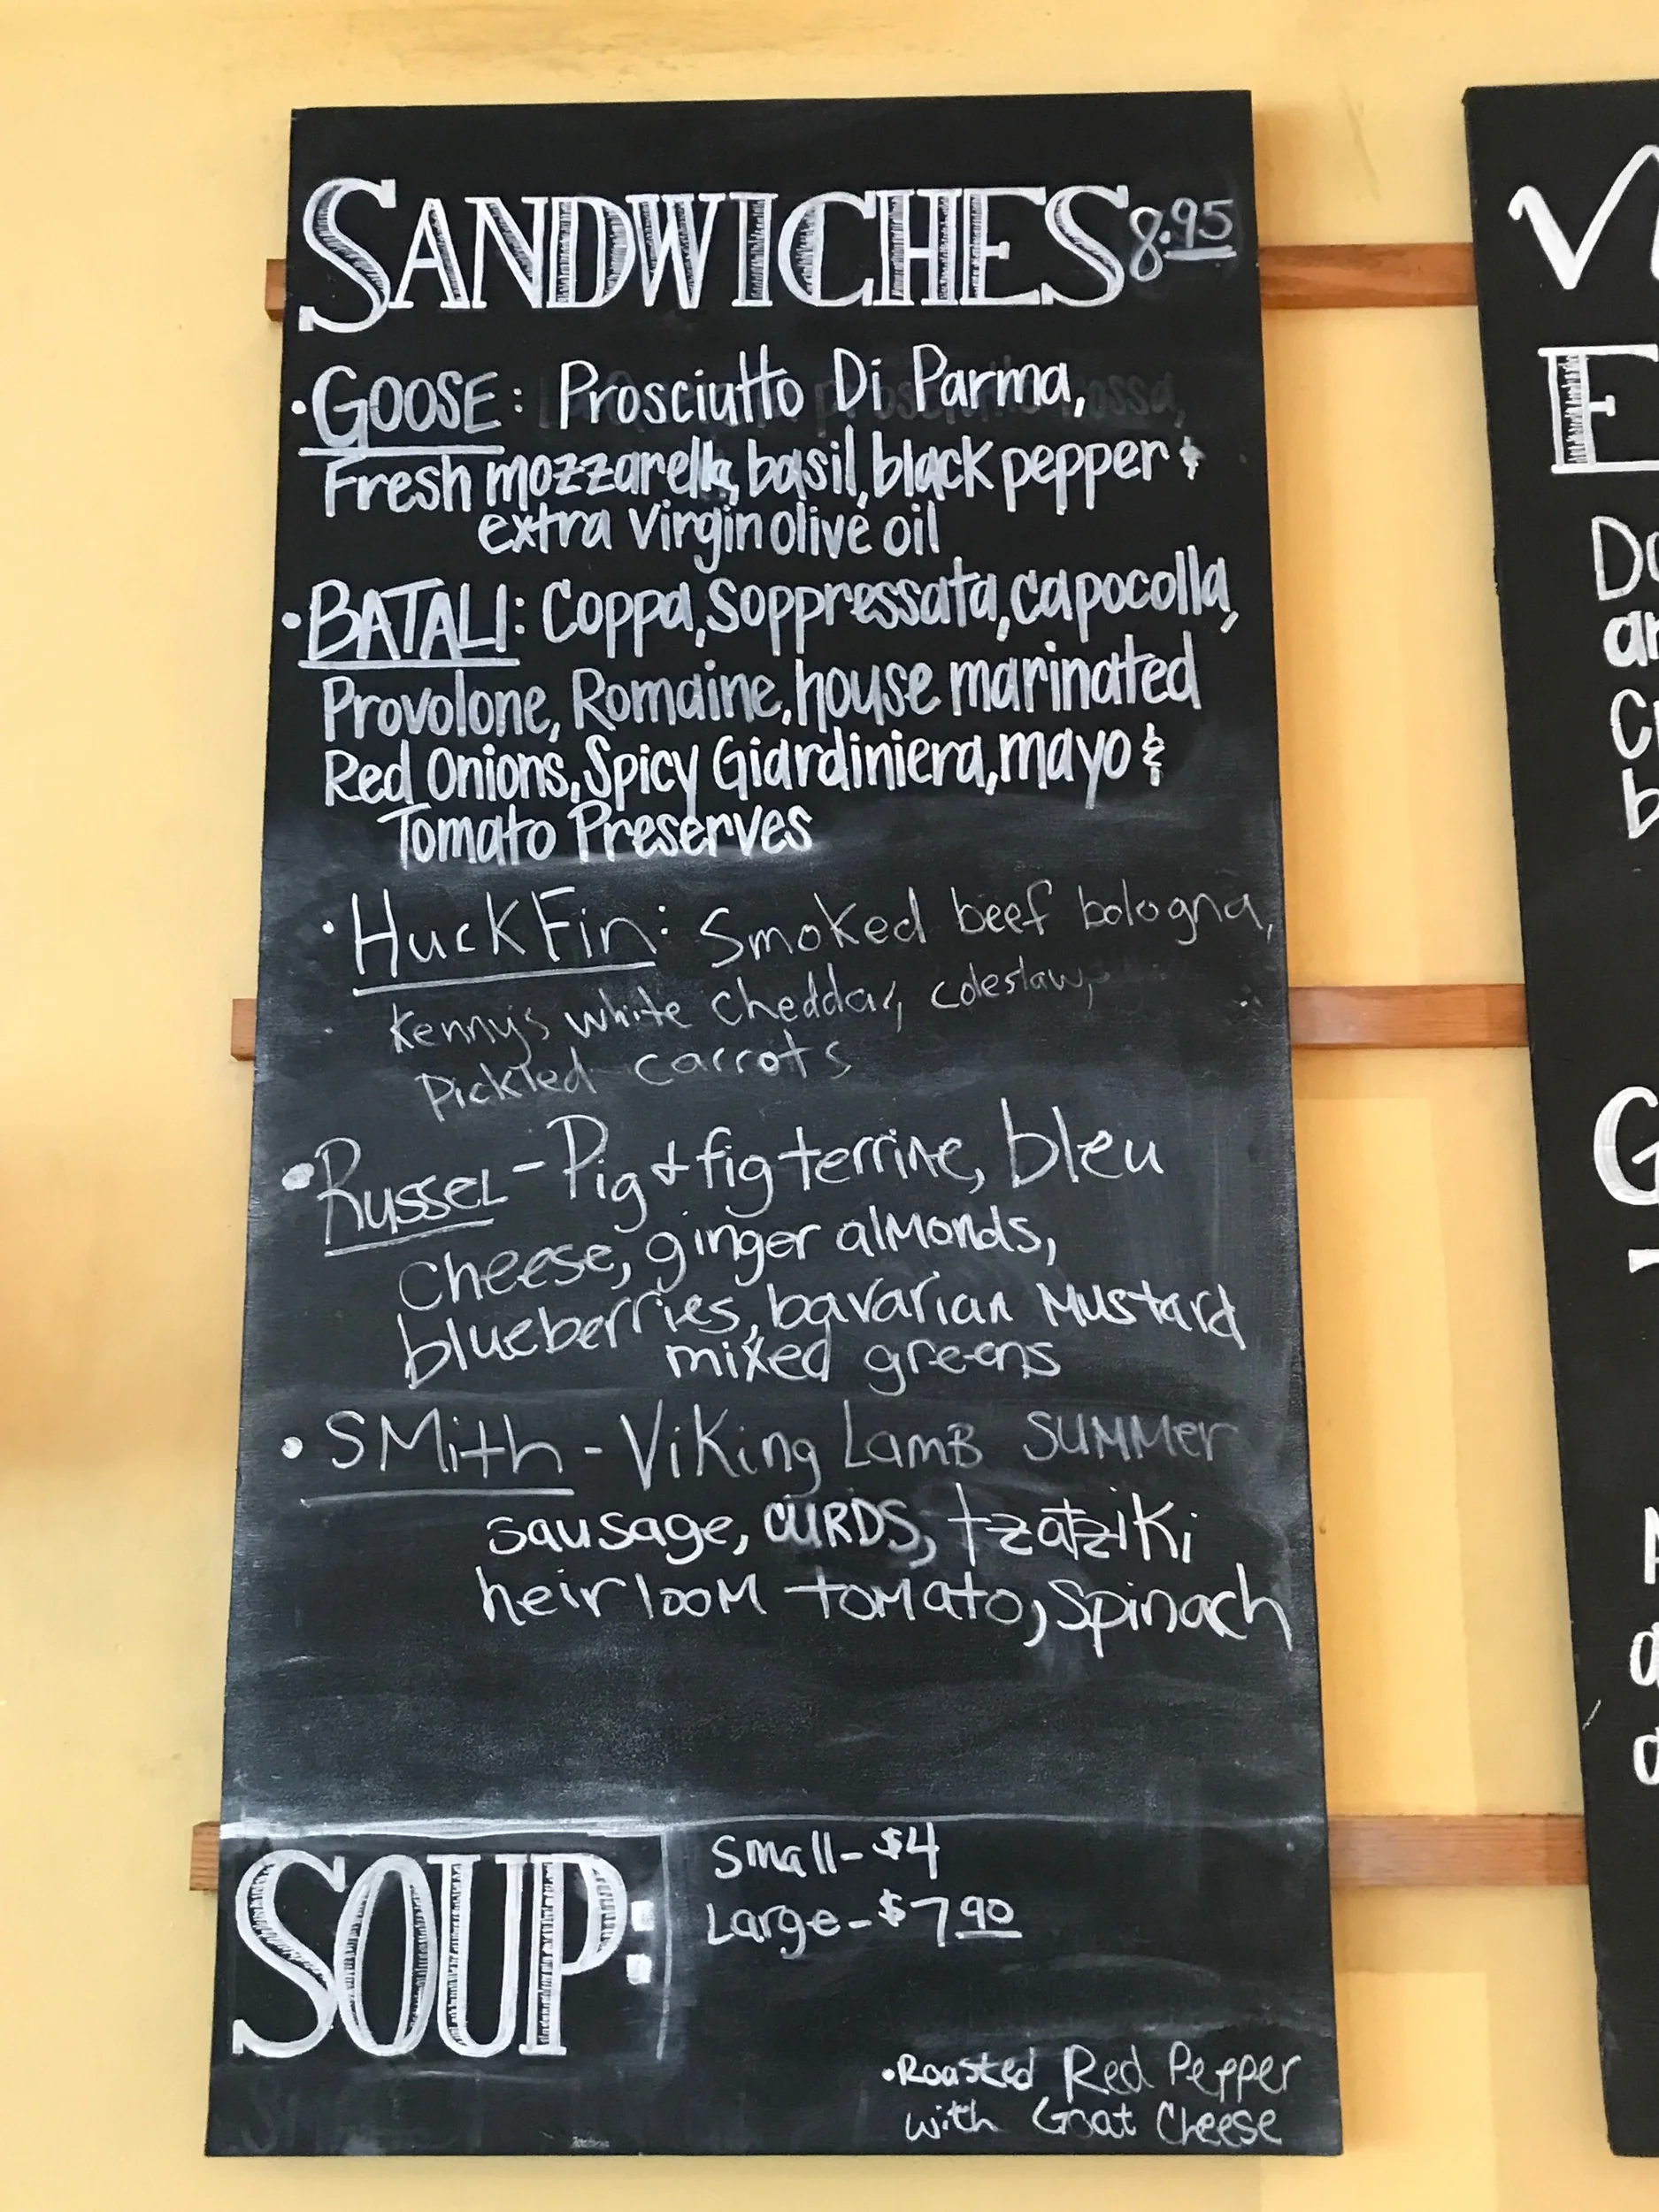 SANDWICHES 8.95
• GOOSE: Prosciutto Di Parma,
Fresh mozzarella, basil, black pepper &
extra virgin olive oil
• BATALI: Coppa, Soppressata, capocolla,
Provolone, Romaine, house marinated
Red Onions, Spicy Giardiniera, mayo &
Tomato Preserves
• Huck Fin: Smoked beef bologna,
Kenny's white cheddar, coleslaw,
Pickled carrots
• Russel - Pig & fig terrine, bleu
cheese, ginger almonds,
blueberries, bavarian mustard
mixed greens
• SMith - Viking Lamb summer
sausage, CURDS, tzatziki
heirloom tomato, spinach
SOUP:
Small - $4
Large - $7.90
• Roasted Red Pepper
with Goat Cheese
V
E
Do
ar
b
G